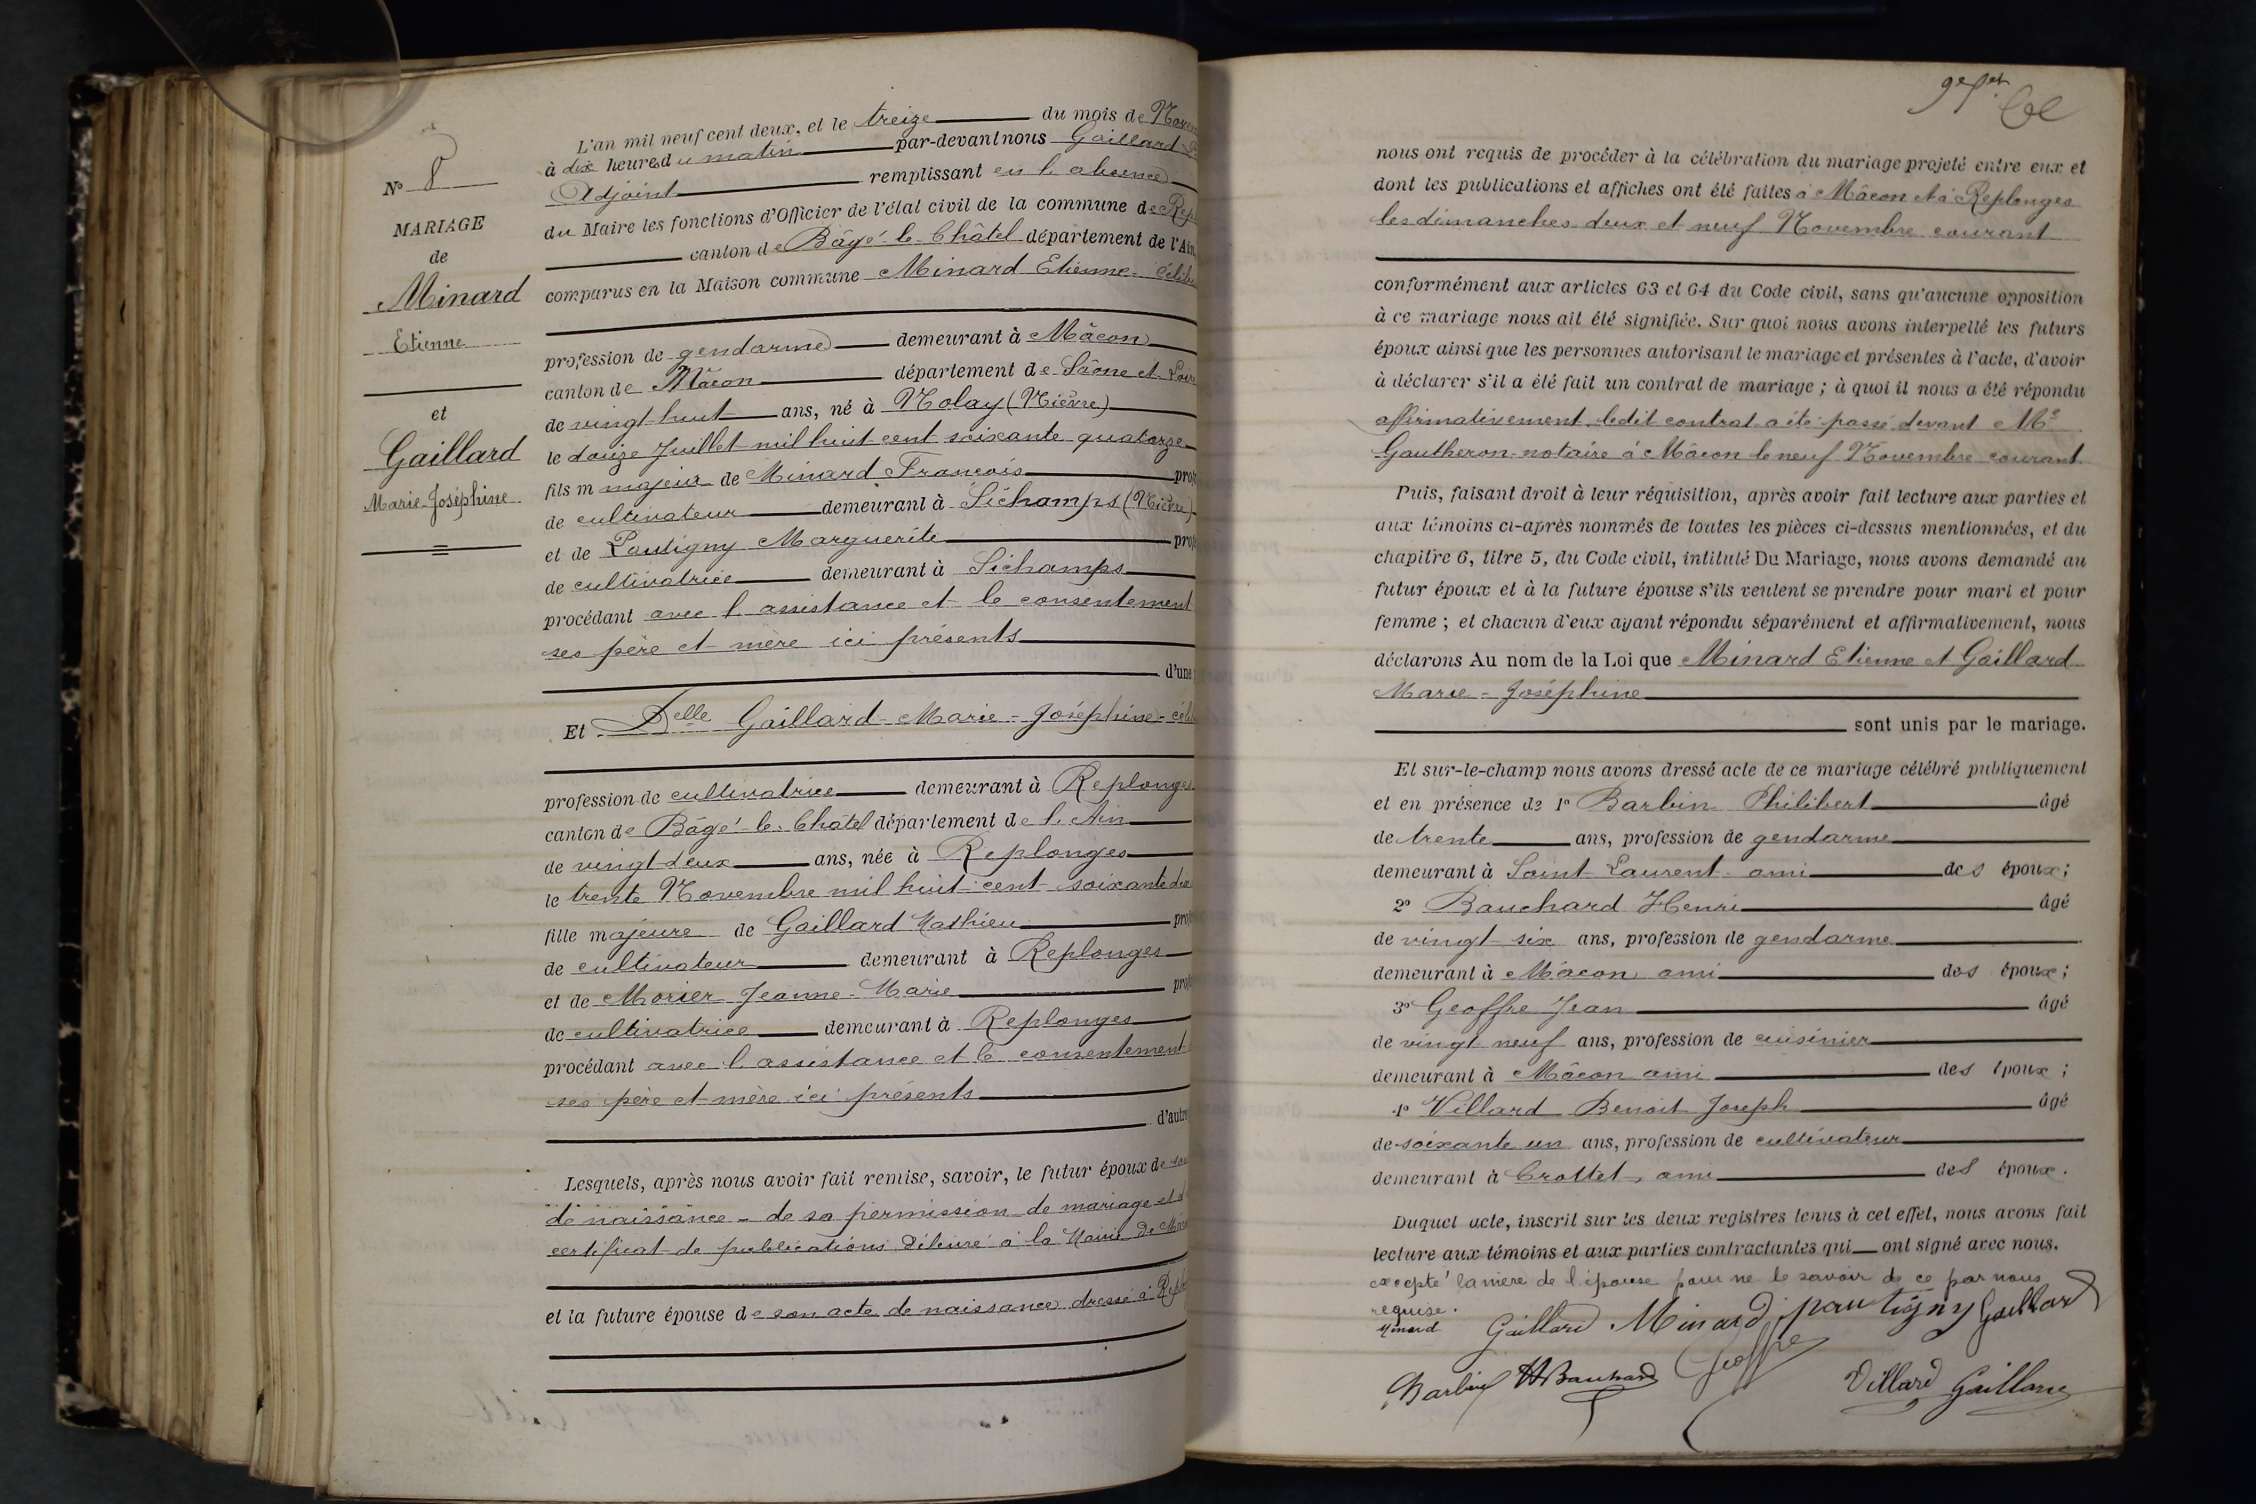 N° 8
MARIAGE
de
Minard
Etienne
et
Gaillard
Marie-Joséphine
L'an mil neuf cent deux, et le treize du mois de
à dix heures du matin par-devant nous Gaillard
Adjoint remplissant en l'absence
du Maire les fonctions d'Officier de l'état civil de la commune de
canton de Bâgé-le-Châtel département de l'Ain
comparus en la Maison commune Minard Etienne
profession de gendarme demeurant à Mâcon
canton de Mâcon département de Saône et Loire
de vingt huit ans, né à Nolay (Nièvre)
le douze Juillet mil huit cent soixante quatorze
fils m majeur de Minard François
de cultivateur demeurant à Sichamps (Nièvre)
et de Pautigny Marguerite
de cultivatrice demeurant à Sichamps
procédant avec l'assistance et le consentement
ses père et mère ici présents
d'une
Et Delle Gaillard Marie-Joséphine
profession de cultivatrice demeurant à Replonges
canton de Bâgé-le-Châtel département de l'Ain
de vingt deux ans, née à Replonges
le trente Novembre mil huit cent soixante
fille majeure de Gaillard Mathieu
de cultivateur demeurant à Replonges
et de Morier Jeanne-Marie
de cultivatrice demeurant à Replonges
procédant avec l'assistance et le consentement
ses père et mère ici présents
d'autre
Lesquels, après nous avoir fait remise, savoir, le futur époux de
de naissance - de sa permission de mariage et
certificat de publications délivré à la Mairie de
et la future épouse de son acte de naissance dressé à
9e fet
nous ont requis de procéder à la célébration du mariage projeté entre eux et
dont les publications et affiches ont été faites à Mâcon et à Replonges
les dimanches deux et neuf Novembre courant
conformément aux articles 63 et 64 du Code civil, sans qu'aucune opposition
à ce mariage nous ait été signifiée. Sur quoi nous avons interpellé les futurs
époux ainsi que les personnes autorisant le mariage et présentes à l'acte, d'avoir
à déclarer s'il a été fait un contrat de mariage ; à quoi il nous a été répondu
affirmativement. ledit contrat a été passé devant Me
Gautheron notaire à Mâcon le neuf Novembre courant
Puis, faisant droit à leur réquisition, après avoir fait lecture aux parties et
aux témoins ci-après nommés de toutes les pièces ci-dessus mentionnées, et du
chapitre 6, titre 5, du Code civil, intitulé Du Mariage, nous avons demandé au
futur époux et à la future épouse s'ils veulent se prendre pour mari et pour
femme ; et chacun d'eux ayant répondu séparément et affirmativement, nous
déclarons Au nom de la Loi que Minard Etienne et Gaillard
Marie-Joséphine
sont unis par le mariage.
Et sur-le-champ nous avons dressé acte de ce mariage célébré publiquement
et en présence de 1° Barbin Philibert âgé
de trente ans, profession de gendarme
demeurant à Saint Laurent ami des époux ;
2° Bauchard Henri âgé
de vingt six ans, profession de gendarme
demeurant à Mâcon ami des époux ;
3° Geoffre Jean âgé
de vingt neuf ans, profession de cuisinier
demeurant à Mâcon ami des époux ;
4° Villard Benoit Joseph âgé
de soixante un ans, profession de cultivateur
demeurant à Crottet, ami des époux.
Duquel acte, inscrit sur les deux registres tenus à cet effet, nous avons fait
lecture aux témoins et aux parties contractantes qui ont signé avec nous.
excepté la mère de l'épouse pour ne le savoir de ce par nous
requise.
Minard Gaillard Minard pautigny Gaillard
Barbin HBauchard Geoffre Villard Gaillard